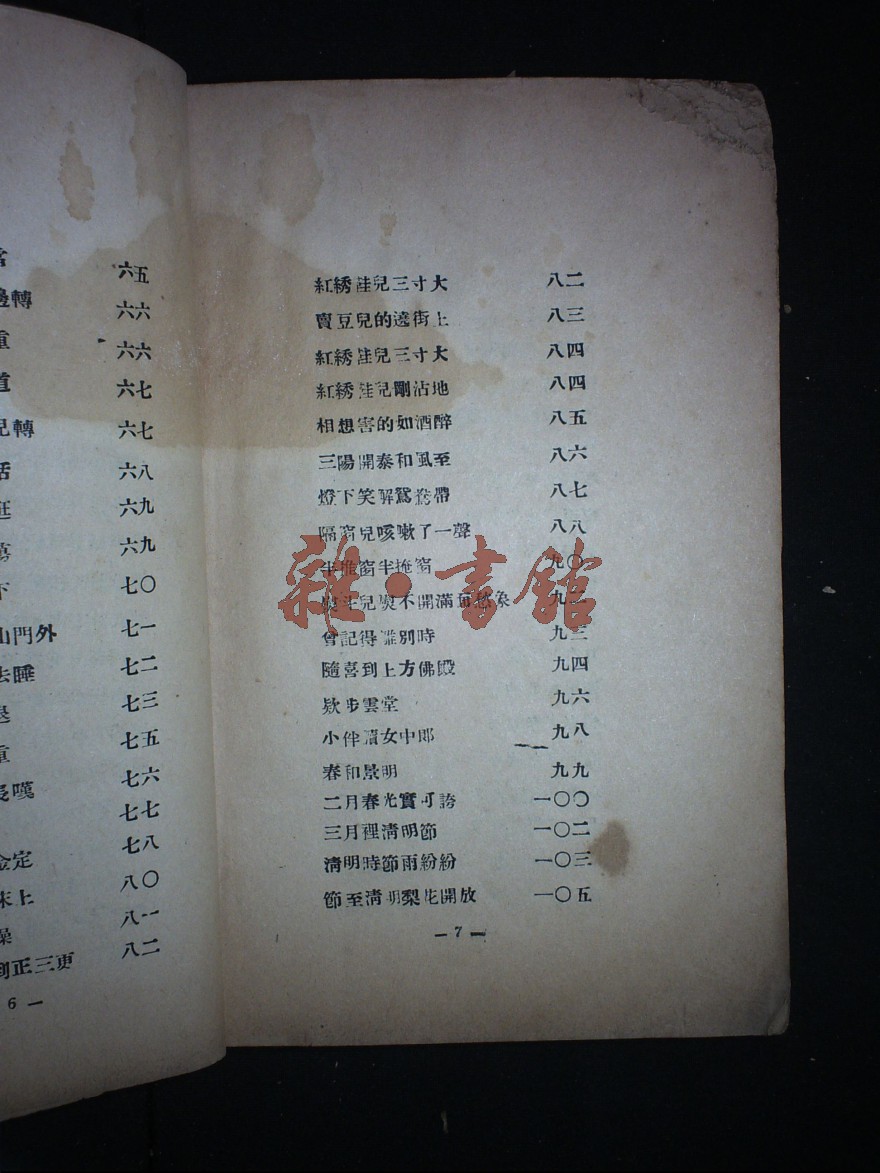 六五
邊轉 六六
重 六六
道 六七
兒轉 六七
話 六八
逛 六九
六九
下 七〇
山門外 七一
去睡 七二
七三
重 七五
長嘆 七六
七七
金定 七八
床上 八〇
八一
到正三更 八二
6 —
紅綉鞋兒三寸大 八二
賣豆兒的遶街上 八三
紅綉鞋兒三寸大 八四
紅綉鞋兒剛沾地 八四
相想害的如酒醉 八五
三陽開泰和風至 八六
燈下笑解鴛鴦帶 八七
隔窗兒咳嗽了一聲 八八
半推窗半掩窗 九〇
熨斗兒熨不開滿面愁 九二
曾記得離別時 九三
隨喜到上方佛殿 九四
欵步雲堂 九六
小伴讀女中郎 九八
春和景明 九九
二月春光實可誇 一〇〇
三月裡清明節 一〇二
清明時節雨紛紛 一〇三
節至清明梨花開放 一〇五
— 7 —
雜·書館